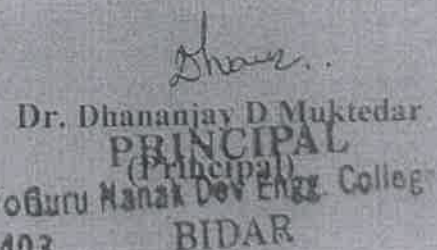 Dhan..
Dr. Dhananjay D Muktedar
PRINCIPAL
(Principal)
Guru Nanak Dev Engg. Colleg
BIDAR
403